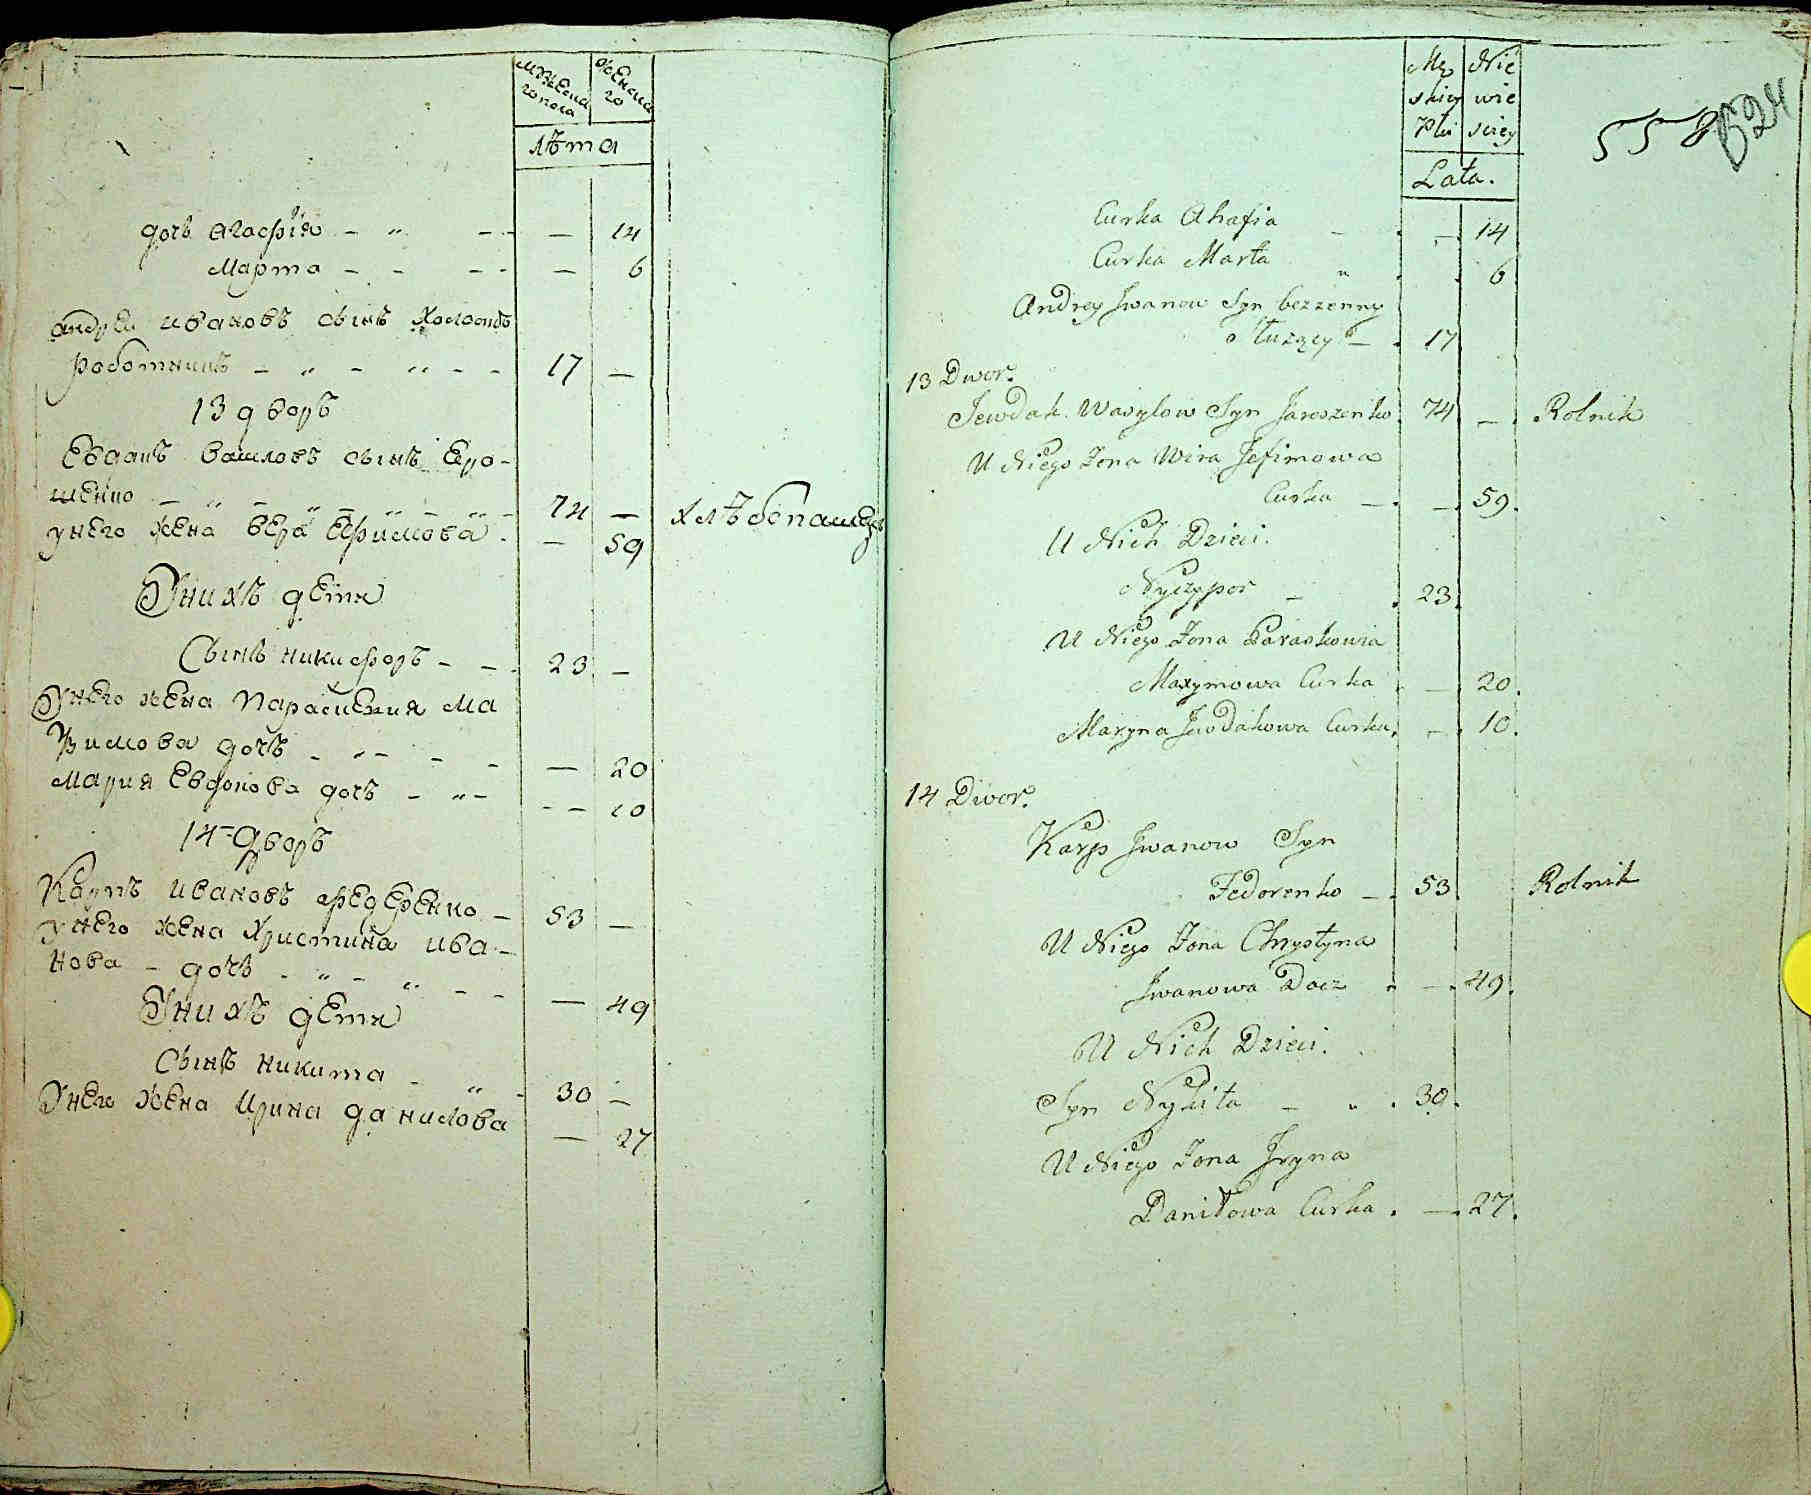 мужеска го пола
женска го
лѣта
дочь агафiя - „ - - — 14
Марта - - - - — 6
андрей ивановъ сынъ холостъ
работникъ - „ - „ - - 17 —
13 дворъ
Евдакъ василовъ сынъ Еро-
шенко - „ - „ - „ - „ - 74 — хлѣбопашецъ
унего жена вера Ефимова - — 59
Унихъ дети
Сынъ никифоръ - - 23 —
Унего жена Параскевия Ма
ѯимова дочъ - „ - - - — 20
Мария Евдокова дочъ - „ - - - 10
14 = Дворъ
Карпъ ивановъ федеренко - 53 —
унего жена христина ива-
нова - дочъ - „ - „ - - — 49
Унихъ дети
Сынъ никита - „ - 30 —
Унего жена Ирина данилова — 27
Mę skiey Płci
Nie wie sciey
Lata.
558
624
Curka Ahafia - - — 14
Curka Marta „ . . 6
Andrey Jwanow Syn bezzenny
służący - . 17
13 Dwor.
Jewdak Wasylow Syn Jaroszenko 74 — Rolnik
U Niego Zona Wira Jefimowa
Curka - — 59.
U Nich Dzieci.
Nyczypor - . 23.
U Niego Zona Paraskowia
Maxymowa Curka . — 20.
Maryna Jewdakowa Curka . — 10.
14 Dwor.
Karp Jwanow Syn
Fedorenko - . 53. Rolnik
U Niego Zona Chrystyna
Jwanowa Docz . — . 49.
U Nich Dzieci.
Syn Nykita - „ . 30.
U Niego Zona Jryna
Daniłowa Curka . — . 27.